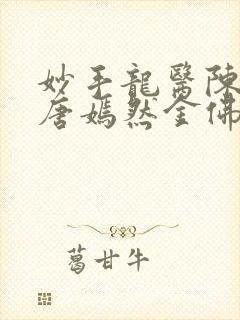 妙手龍醫陳
唐嫣然全佛
葛甘牛